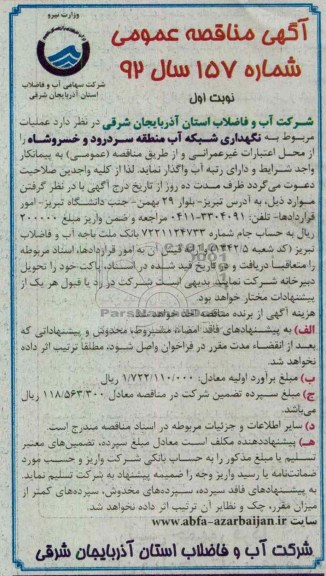 وزارت نیرو
آگهی مناقصه عمومی
شماره ۱۵۷ سال ۹۲
شرکت سهامی آب و فاضلاب
استان آذربایجان شرقی
نوبت اول
شرکت آب و فاضلاب استان آذربایجان شرقی در نظر دارد عملیات
مربوط به نگهداری شبکه آب منطقه سردرود و خسروشاه را
از محل اعتبارات غیرعمرانی و از طریق مناقصه (عمومی) به پیمانکار
واجد شرایط و دارای رتبه آب واگذار نماید. لذا از کلیه واجدین صلاحیت
دعوت می‌گردد ظرف مدت ده روز از تاریخ درج آگهی با در نظر گرفتن
موارد ذیل، به آدرس تبریز- بلوار ۲۹ بهمن- جنب دانشگاه تبریز- امور
قراردادها- تلفن: ۳۳۰۴۰۹۱-۰۴۱۱ مراجعه و ضمن واریز مبلغ ۲۰۰۰۰۰
ریال به حساب جام شماره ۷۲۲۱۱۲۴۷۳۳ بانک ملت باجه آب و فاضلاب
تبریز (کد شعبه ۳۴۴۲/۵) و ارائه فیش آن به امور قراردادها، اسناد مربوطه
را متعاقباً دریافت و در تاریخ قید شده در اسناد، پاکت خود را تحویل
دبیرخانه شرکت نمایند. بدیهی است شرکت در رد یا قبول هر یک از
پیشنهادات مختار خواهد بود.
هزینه آگهی از برنده مناقصه اخذ خواهد شد.
الف) به پیشنهادهای فاقد امضاء، مشروط، مخدوش و پیشنهاداتی که
بعد از انقضاء مدت مقرر در فراخوان واصل شود، مطلقاً ترتیب اثر داده
نخواهد شد.
ب) مبلغ برآورد اولیه معادل: ۱/۷۲۲/۱۱۰/۰۰۰ ریال
ج) مبلغ سپرده تضمین شرکت در مناقصه معادل ۱۱۸/۵۶۳/۳۰۰ ریال
می‌باشد.
د) سایر اطلاعات و جزئیات مربوطه در اسناد مناقصه مندرج است.
هـ) پیشنهاددهنده مکلف است معادل مبلغ سپرده، تضمین‌های معتبر
تسلیم یا مبلغ مذکور را به حساب بانکی شرکت واریز و حسب مورد
ضمانت‌نامه یا رسید واریز وجه را ضمیمه پیشنهاد به شرکت تسلیم نماید.
به پیشنهادهای فاقد سپرده، سپرده‌های مخدوش، سپرده‌های کمتر از
میزان مقرر، چک و نظایر آن ترتیب اثر داده نخواهد شد.
سایت www.abfa-azarbaijan.ir
شرکت آب و فاضلاب استان آذربایجان شرقی